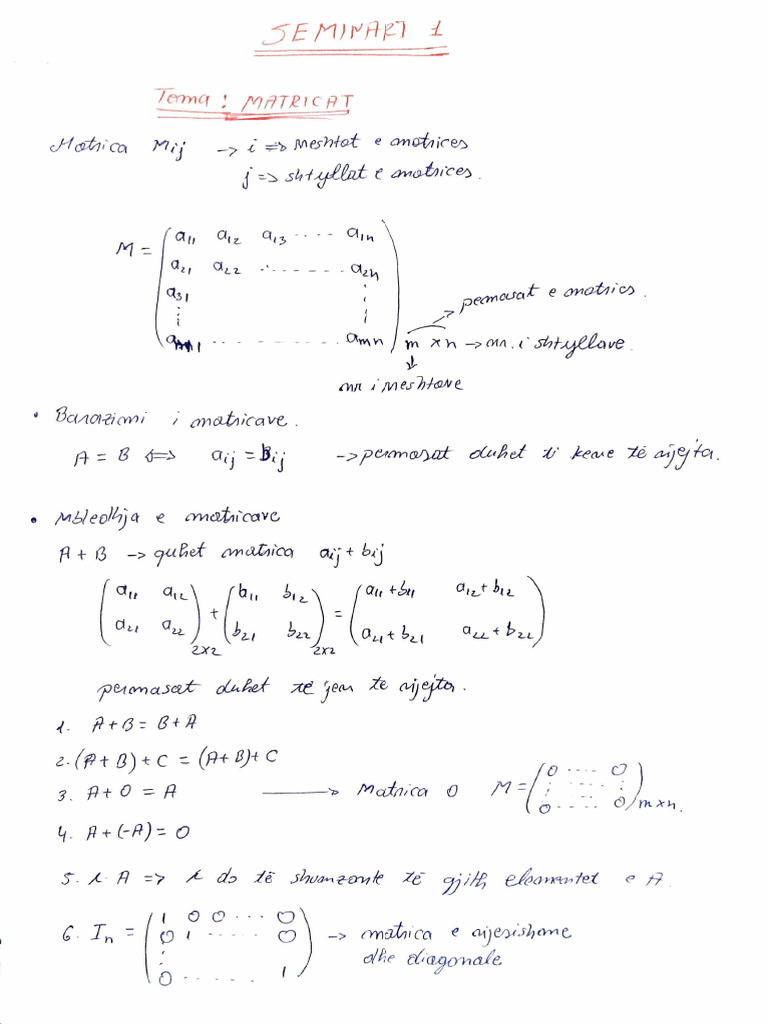 SEMINARI 1
Tema : MATRICAT
Matrica Mij → i ⇒ rreshtat e matrices
j ⇒ shtyllat e matrices.
M = ( a11 a12 a13 .... a1n
a21 a22 ......... a2n
a31 ⋮
⋮ ⋮
am1 ............ amn ) m × n → nr. i shtyllave.
permasat e matrics.
↓
nr i rreshtave
• Barazimi i matricave.
A = B ⇔ aij = bij → permasat duhet ti kene të njejta.
• Mbledhja e matricave
A + B → quhet matrica aij + bij
( a11 a12 ) + ( b11 b12 ) = ( a11+b11 a12+b12 )
( a21 a22 )2x2 ( b21 b22 )2x2 ( a21+b21 a22+b22 )
permasat duhet të jen te njejta.
1. A+B = B+A
2. (A+B)+C = (A+B)+C
3. A+0 = A → Matrica 0 M = ( 0 .... 0
⋮ .... ⋮
0 .... 0 ) m×n.
4. A+(-A) = 0
5. λ.A ⇒ λ do të shumzonte të gjith elementet e A.
6. In = ( 1 0 0 ... 0
0 1 ..... 0
⋮
0 ...... 1 ) → matrica e njesishme
dhe diagonale